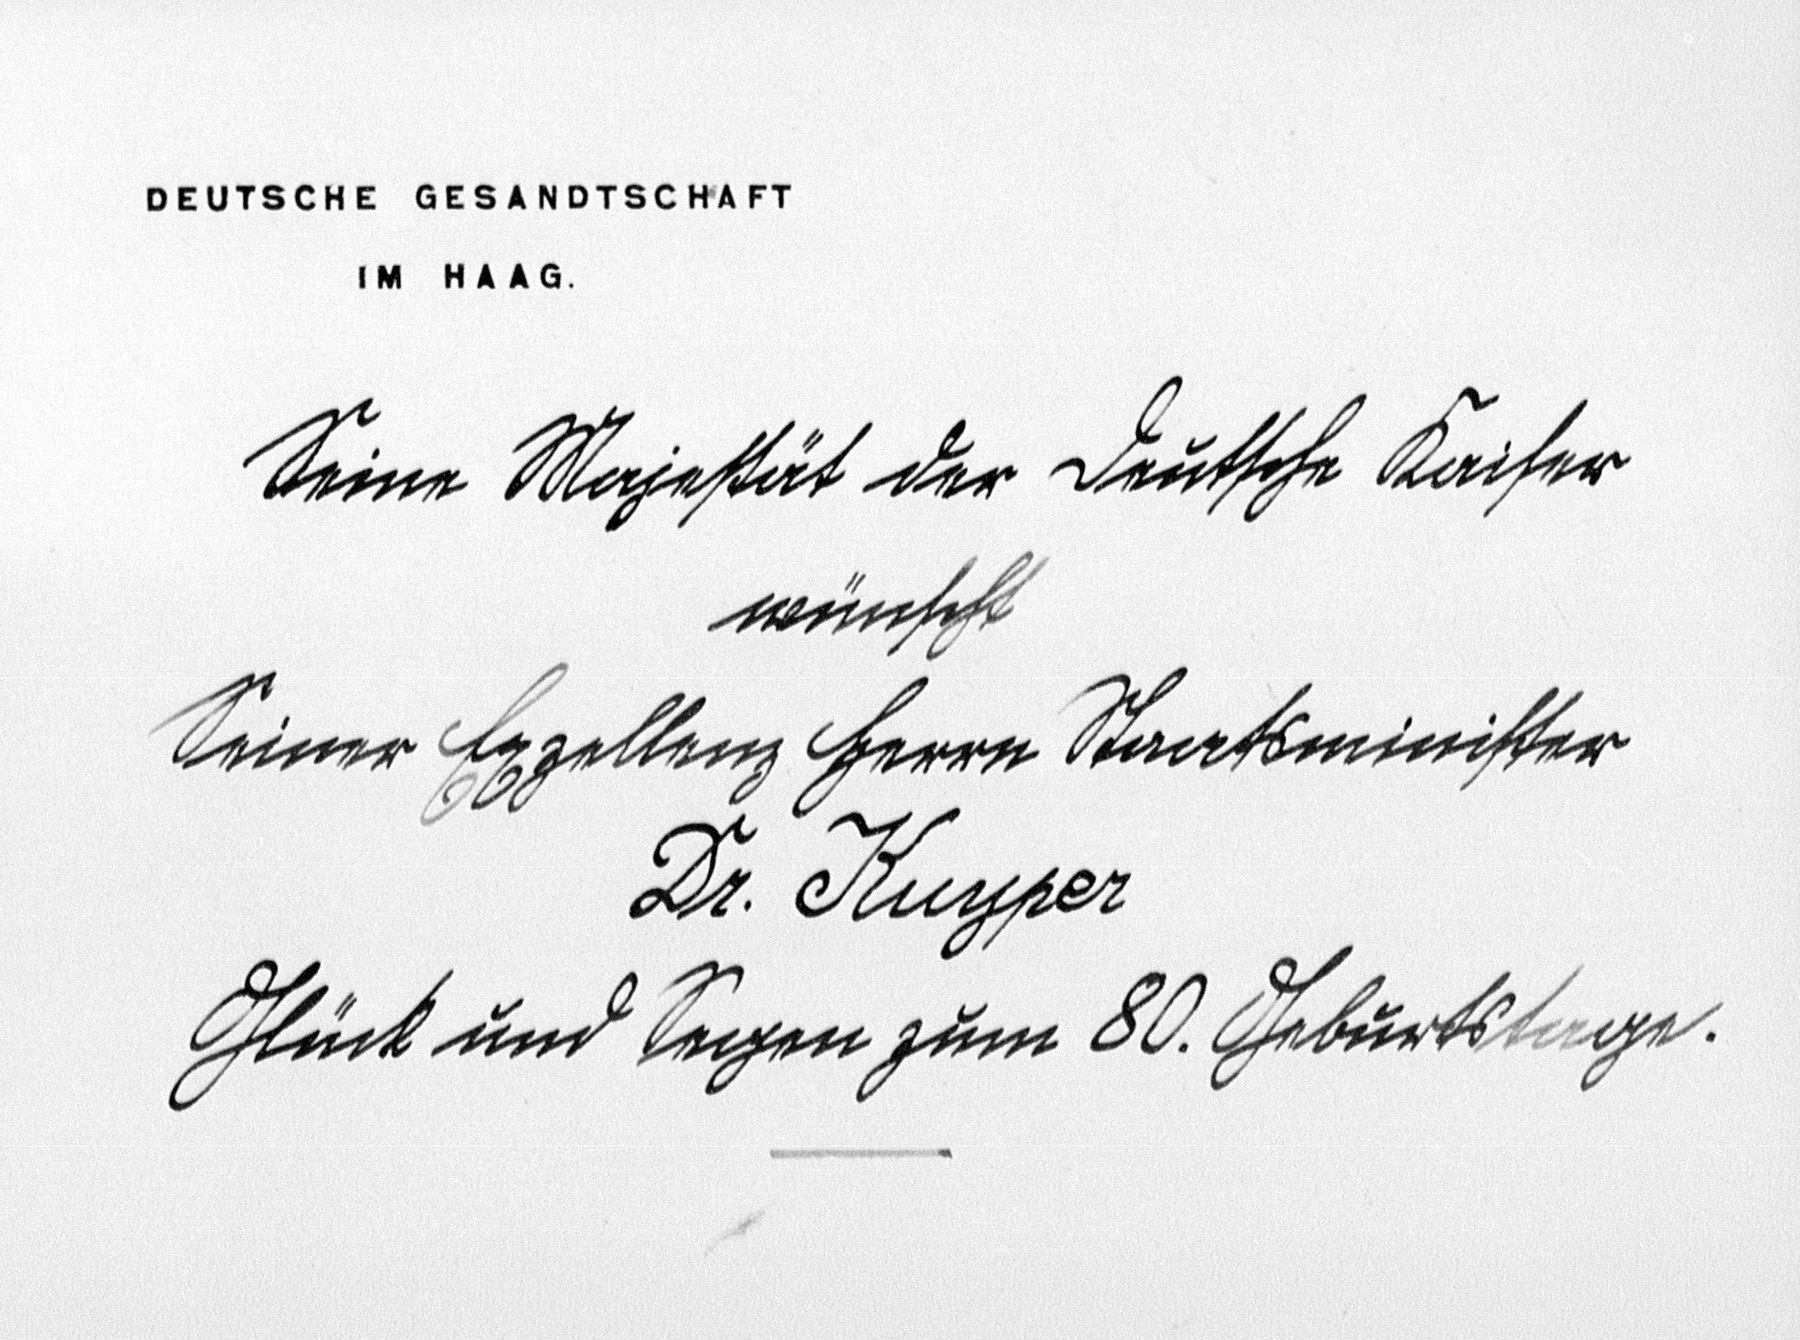 DEUTSCHE GESANDTSCHAFT
IM HAAG.
Seine Majestät der Deutsche Kaiser
wünscht
Seiner Exzellenz Herrn Staatsminister
Dr. Kuyper
Glück und Segen zum 80. Geburtstage.